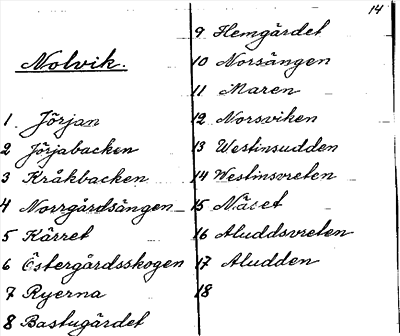 14
Nolvik.
1. Jörjan
2 Jörjabacken
3 Kråkbacken
4 Norrgårdsängen
5 Kärret
6 Östergårdsskogen
7 Ryerna
8 Bastugärdet
9 Hemgärdet
10 Norsängen
11 Maren
12 Norsviken
13 Westinsudden
14 Westinsvreten
15 Näset
16 Aluddsvreten
17 Aludden
18